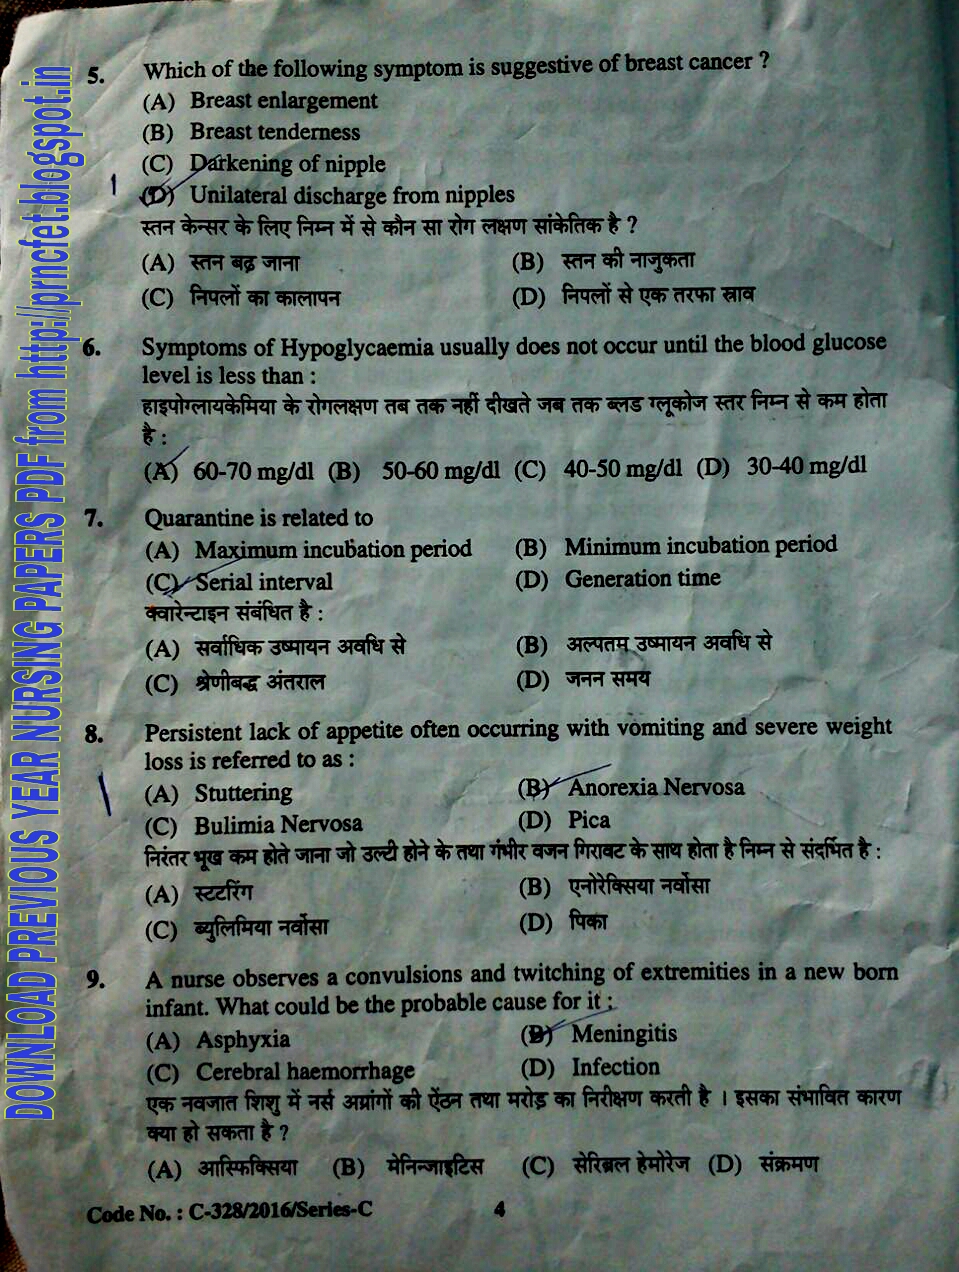 DOWNLOAD PREVIOUS YEAR NURSING PAPERS PDF from http://prncfet.blogspot.in
5. Which of the following symptom is suggestive of breast cancer ?
(A) Breast enlargement
(B) Breast tenderness
(C) Darkening of nipple
1 (D) Unilateral discharge from nipples
स्तन केन्सर के लिए निम्न में से कौन सा रोग लक्षण सांकेतिक है ?
(A) स्तन बढ़ जाना (B) स्तन की नाजुकता
(C) निपलों का कालापन (D) निपलों से एक तरफा स्राव
6. Symptoms of Hypoglycaemia usually does not occur until the blood glucose
level is less than :
हाइपोग्लायकेमिया के रोगलक्षण तब तक नहीं दीखते जब तक ब्लड ग्लूकोज स्तर निम्न से कम होता
है :
(A) 60-70 mg/dl (B) 50-60 mg/dl (C) 40-50 mg/dl (D) 30-40 mg/dl
7. Quarantine is related to
(A) Maximum incubation period (B) Minimum incubation period
(C) Serial interval (D) Generation time
क्वारेन्टाइन संबंधित है :
(A) सर्वाधिक उष्मायन अवधि से (B) अल्पतम उष्मायन अवधि से
(C) श्रेणीबद्ध अंतराल (D) जनन समय
8. Persistent lack of appetite often occurring with vomiting and severe weight
loss is referred to as :
(A) Stuttering (B) Anorexia Nervosa
(C) Bulimia Nervosa (D) Pica
निरंतर भूख कम होते जाना जो उल्टी होने के तथा गंभीर वजन गिरावट के साथ होता है निम्न से संदर्भित है :
(A) स्टटरिंग (B) एनोरेक्सिया नर्वोसा
(C) ब्युलिमिया नर्वोसा (D) पिका
9. A nurse observes a convulsions and twitching of extremities in a new born
infant. What could be the probable cause for it :
(A) Asphyxia (B) Meningitis
(C) Cerebral haemorrhage (D) Infection
एक नवजात शिशु में नर्स अग्रांगों की ऐंठन तथा मरोड़ का निरीक्षण करती है । इसका संभावित कारण
क्या हो सकता है ?
(A) आस्फिक्सिया (B) मेनिन्जाइटिस (C) सेरिब्रल हेमोरेज (D) संक्रमण
Code No. : C-328/2016/Series-C 4